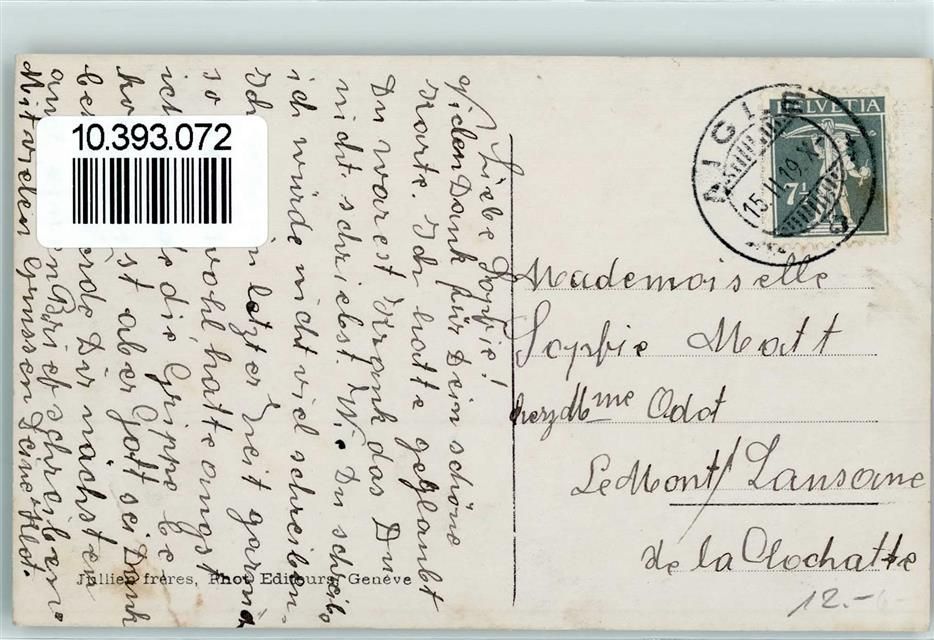 10.393.072
Liebe Sophie!
Vielen Dank für Dein schöne
Karte. Ich hatte geglaubt
Du warest Krank das Du
nicht schriebst. Wie Du schreibs
ich würde nicht viel schreiben.
Ich in letzter Zeit gar
so wohl hatte angst
ich die Grippe be
ko st aber Gott sei Dank
be erde Dir nächsten
an en Brief schreiben
Mit vielen Grüssen Deine
Jullien frères, Phot. Editeurs, Genève
RIGI
15.II.19.X
HELVETIA
7½
Mademoiselle
Sophie Matt
chez Mme Odot
Le Mont / Lausane
de la Clochatte
12.-